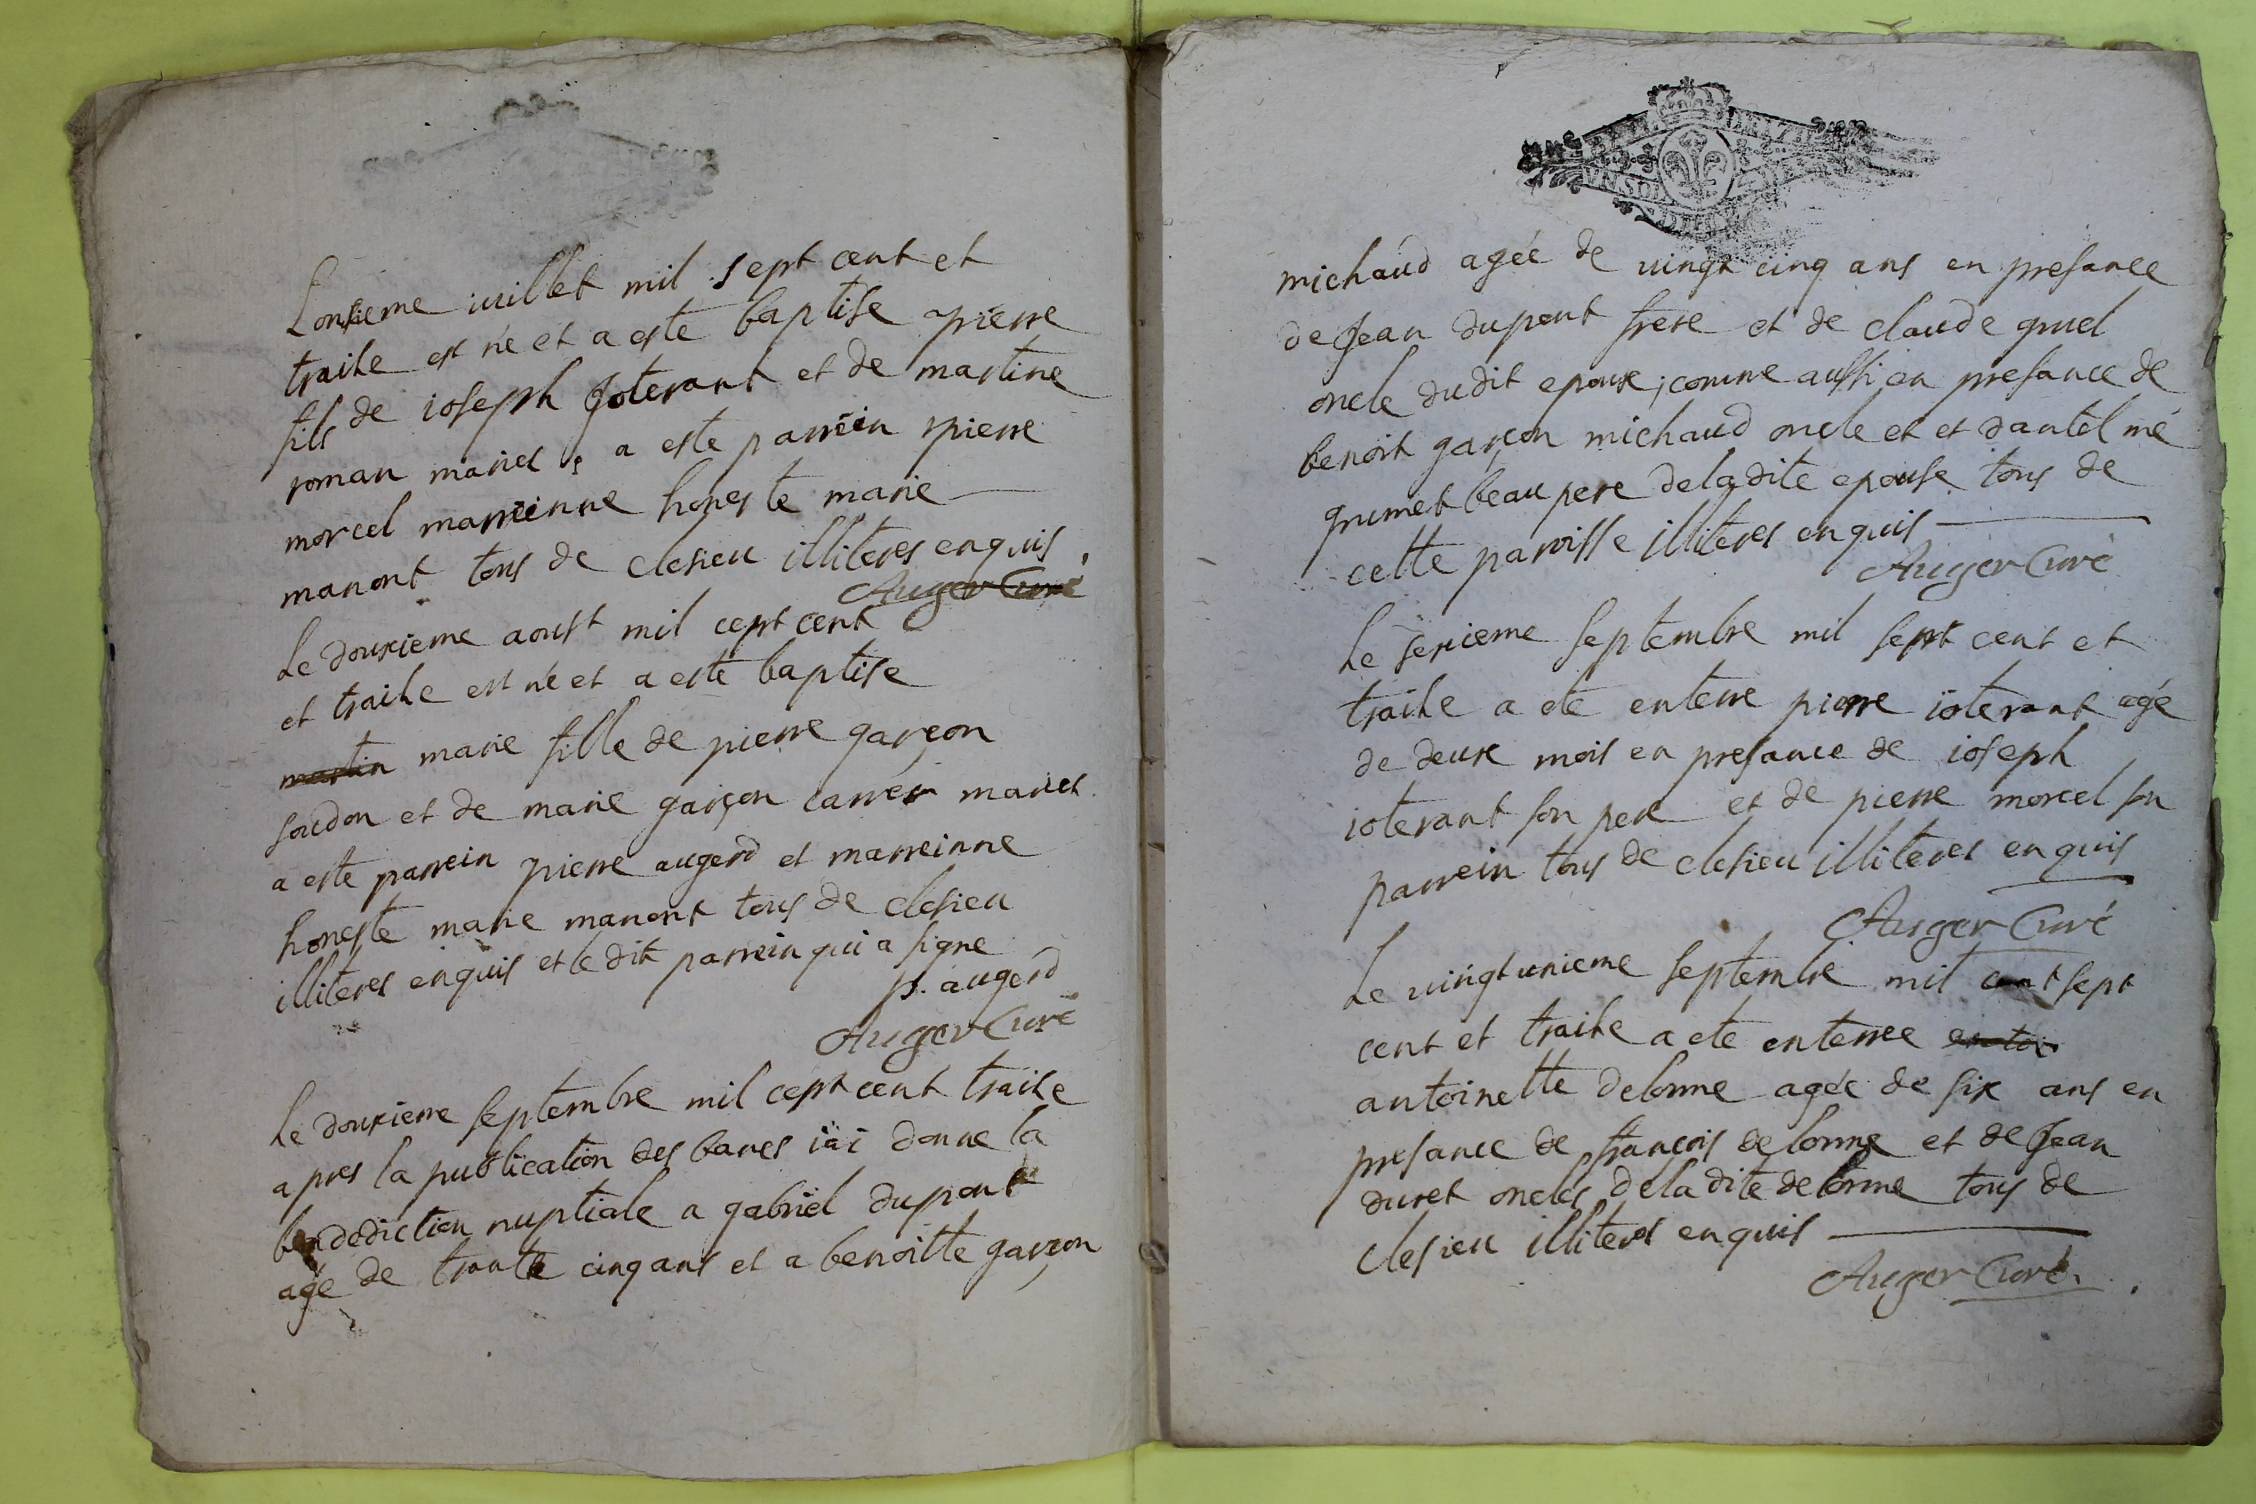 Lonsieme iuillet mil sept cent et
traite est né et a este baptise pierre
fils de ioseph Joterant et de martine
roman mariés, a este parrein pierre
morcel marreinne honeste marie
manont tous de clesieu illiteres enquis.
Auger Curé
Le douxieme aoust mil cept cent
et traite est né et a este baptise
martin marie fille de pierre garçon
soudon et de marie garçon mariés
a este parrein pierre augerd et marreinne
honeste marie manont tous de clesieu
illiteres enquis et le dit parrein qui a signe
p. augerd
Auger Curé
Le douxieme septembre mil cept cent traite
apres la publication des bancs iai donne la
bendediction nuptiale a gabriel dupont
agé de trante cinq ans et a benoitte garçon
michaud agée de vingt cinq ans en presance
de Jean dupont frere et de claude gruel
oncle dudit epoux; comme aussi en presance de
benoit garçon michaud oncle et et
grumet beau pere deladite epouse tous de
cette paroisse illiteres enquis
Auger Curé
Le sexieme septembre mil sept cent et
traite a ete enterre pierre ioterant agé
de deux mois en presance de ioseph
ioterant son pere et de pierre morcel son
parrein tous de clesieu illiteres enquis
Auger Curé
Le vingtunieme septembre mil cent sept
cent et traite a ete enterree
antoinette delorme agée de six ans en
presance de francois delorme et de Jean
duret oncles deladite delorme tous de
clesieu illiteres enquis
Auger Curé.